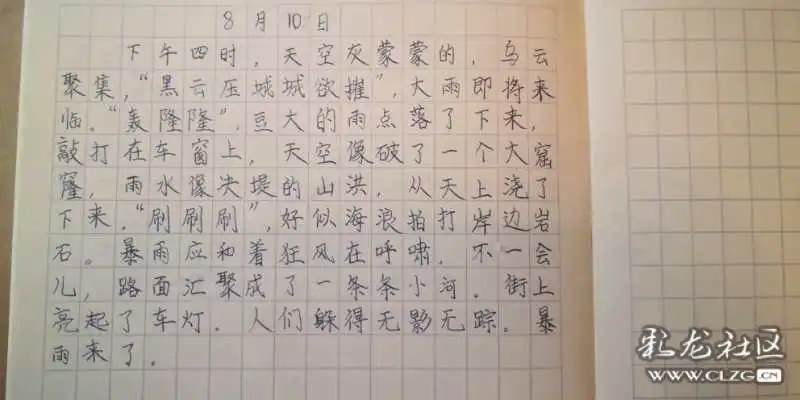 8月10日
下午四时，天空灰蒙蒙的，乌云
聚集，“黑云压城城欲摧”，大雨即将来
临。“轰隆隆”，豆大的雨点落了下来，
敲打在车窗上，天空像破了一个大窟
窿，雨水像决堤的山洪，从天上浇了
下来。“刷刷刷”，好似海浪拍打岸边岩
石。暴雨应和着狂风在呼啸，不一会
儿，路面汇聚成了一条条小河。街上
亮起了车灯。人们躲得无影无踪。暴
雨来了.
彩龙社区
WWW.CLZG.CN